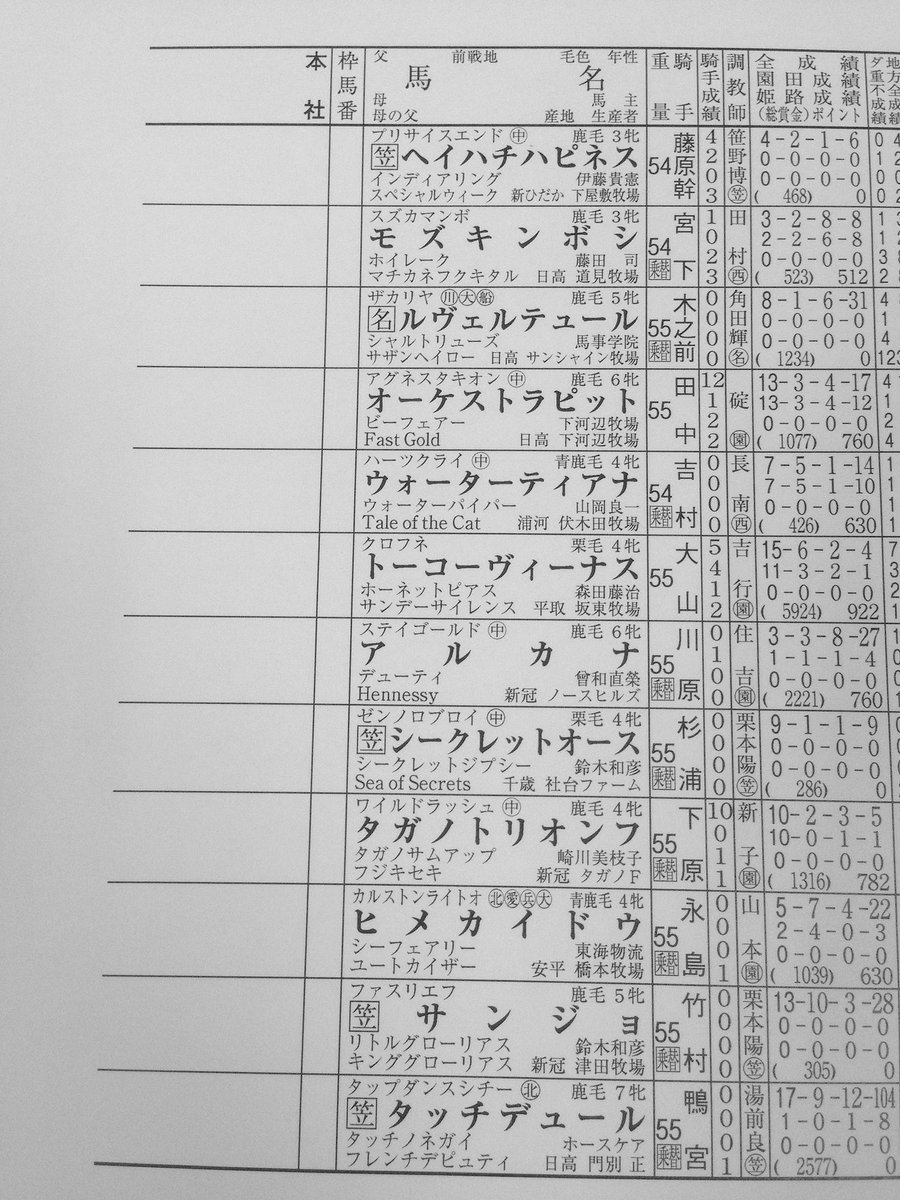 本社
枠馬番
父 前戦地 毛色 年性
馬名
母 馬主
母の父 産地 生産者
重量
騎手
騎手成績
調教師
全成績
園田成績
姫路成績
(総賞金)ポイント
ダ重不成績
地方全成績
プリサイスエンド ㊥ 鹿毛 3 牝
笠 ヘイハチハピネス
インディアリング 伊藤貴憲
スペシャルウィーク 新ひだか 下屋敷牧場
54 藤原幹
4 2 0 3
笹野博 笠
4-2-1-6
0-0-0-0
0-0-0-0
( 468) 0
スズカマンボ 鹿毛 3 牝
モズキンボシ
ホイレーク 藤田 司
マチカネフクキタル 日高 道見牧場
54 宮下
乗替
1 0 2 3
田村 西
3-2-8-8
2-2-6-8
0-0-0-0
( 523) 512
ザカリヤ 川 大 船 鹿毛 5 牝
名 ルヴェルテュール
シャルトリューズ 馬事学院
サザンヘイロー 日高 サンシャイン牧場
55 木之前
乗替
0 0 0 0
角田輝 名
8-1-6-31
0-0-0-0
0-0-0-0
( 1234) 0
アグネスタキオン ㊥ 鹿毛 6 牝
オーケストラピット
ビーフェアー 下河辺牧場
Fast Gold 日高 下河辺牧場
55 田中
12 1 2 2
碇 園
13-3-4-17
13-3-4-12
0-0-0-0
( 1077) 760
ハーツクライ ㊥ 青鹿毛 4 牝
ウォーターティアナ
ウォーターパイパー 山岡良一
Tale of the Cat 浦河 伏木田牧場
54 吉村
乗替
0 0 0 0
長南 西
7-5-1-14
7-5-1-10
0-0-0-0
( 426) 630
クロフネ 栗毛 4 牝
トーコーヴィーナス
ホーネットピアス 森田藤治
サンデーサイレンス 平取 坂東牧場
55 大山
5 4 1 2
吉行 園
15-6-2-4
11-3-2-1
0-0-0-0
( 5924) 922
ステイゴールド ㊥ 鹿毛 6 牝
アルカナ
デューティ 曾和直榮
Hennessy 新冠 ノースヒルズ
55 川原
乗替
0 1 0 0
住吉 園
3-3-8-27
1-1-1-4
0-0-0-0
( 2221) 760
ゼンノロブロイ ㊥ 栗毛 4 牝
笠 シークレットオース
シークレットジプシー 鈴木和彦
Sea of Secrets 千歳 社台ファーム
55 杉浦
乗替
0 0 0 0
栗本陽 笠
9-1-1-9
0-0-0-0
0-0-0-0
( 286) 0
ワイルドラッシュ ㊥ 鹿毛 4 牝
タガノトリオンフ
タガノサムアップ 崎川美枝子
フジキセキ 新冠 タガノF
55 下原
乗替
10 0 1 1
新子 園
10-2-3-5
10-0-1-1
0-0-0-0
( 1316) 782
カルストンライトオ 北 愛 兵 大 青鹿毛 4 牝
ヒメカイドウ
シーフェアリー 東海物流
ユートカイザー 安平 橋本牧場
55 永島
乗替
0 0 0 1
山本 園
5-7-4-22
2-4-0-3
0-0-0-0
( 1039) 630
ファスリエフ 鹿毛 5 牝
笠 サンジョ
リトルグローリアス 鈴木和彦
キンググローリアス 新冠 津田牧場
55 竹村
乗替
0 0 0 0
栗本陽 笠
13-10-3-28
0-0-0-0
0-0-0-0
( 305) 0
タップダンスシチー 北 鹿毛 7 牝
笠 タッチデュール
タッチノネガイ ホースケア
フレンチデピュティ 日高 門別 正
55 鴨宮
乗替
0 0 0 1
湯前良 笠
17-9-12-104
1-0-1-8
0-0-0-0
( 2577) 0